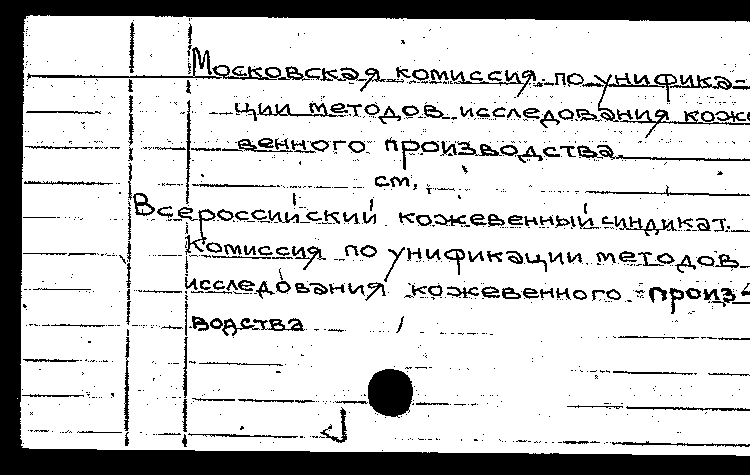 Московская комиссия по унифика-
ции методов исследования коже
венного производства.
см.
Всероссийский кожевенный синдикат.
Комиссия по унификации методов
исследования кожевенного произ-
водства